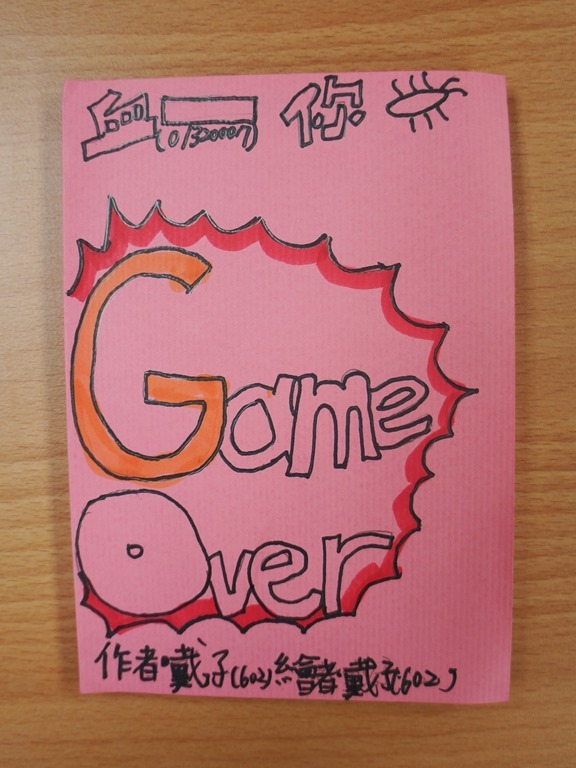 血 你
Game
Over
作者:戴子(602)繪者:戴子(602)